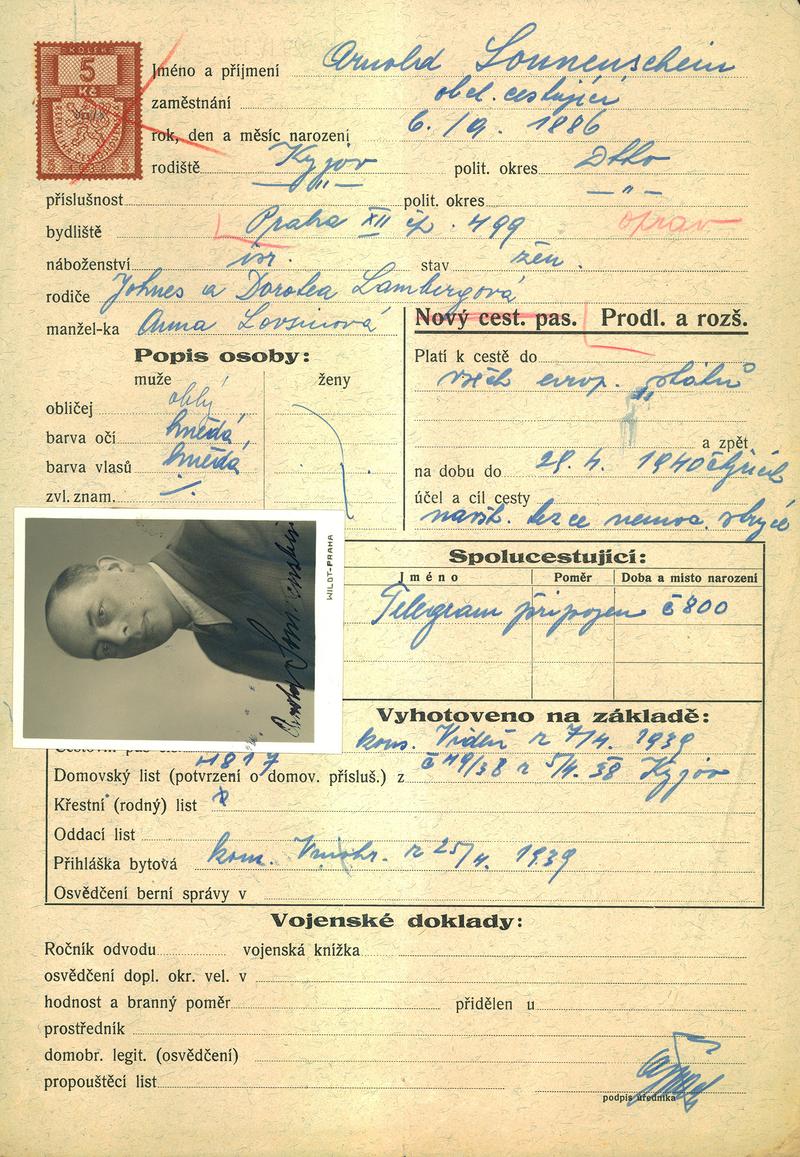 KOLEK
5
Kč
Jméno a příjmení Arnold Sonnenschein
zaměstnání obch. cestující
rok, den a měsíc narození 6. /9. 1886
rodiště Kyjov polit. okres Dtto
příslušnost — " — polit. okres — " —
bydliště Praha XII čp. 499 oprav
náboženství isr. stav žen.
rodiče Johnes a Dorotea Lambergová
manžel-ka Anna
Nový cest. pas. Prodl. a rozš.
Popis osoby:
muže ženy
obličej oblý
barva očí hnědá,
barva vlasů hnědá
zvl. znam. ·/.
Platí k cestě do
všech evrop. států
a zpět
na dobu do 29. 4. 1940
účel a cíl cesty
návšt. nemoc. strýce
WILDT-PRAHA
Arnold Sonnenschein
Spolucestující:
Jméno Poměr Doba a místo narození
Telegram připojen č 800
Vyhotoveno na základě:
kons. Vídeň z 7/4. 1939
4817
Domovský list (potvrzení o domov. přísluš.) z č 49/38 z 5/4. 38 Kyjov
Křestní (rodný) list
Oddací list
Přihláška bytová kom. Vinohr. z 25/4. 1939
Osvědčení berní správy v
Vojenské doklady:
Ročník odvodu vojenská knížka
osvědčení dopl. okr. vel. v
hodnost a branný poměr přidělen u
prostředník
domobr. legit. (osvědčení)
propouštěcí list
podpis úředníka